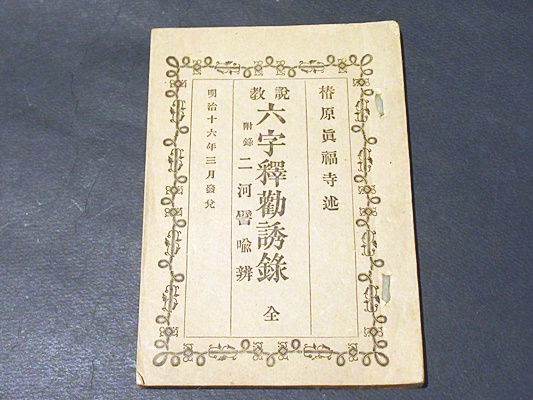 椿原眞福寺述
説教
六字釋勸誘錄 全
附錄 二河譬喩辨
明治十六年三月發兌